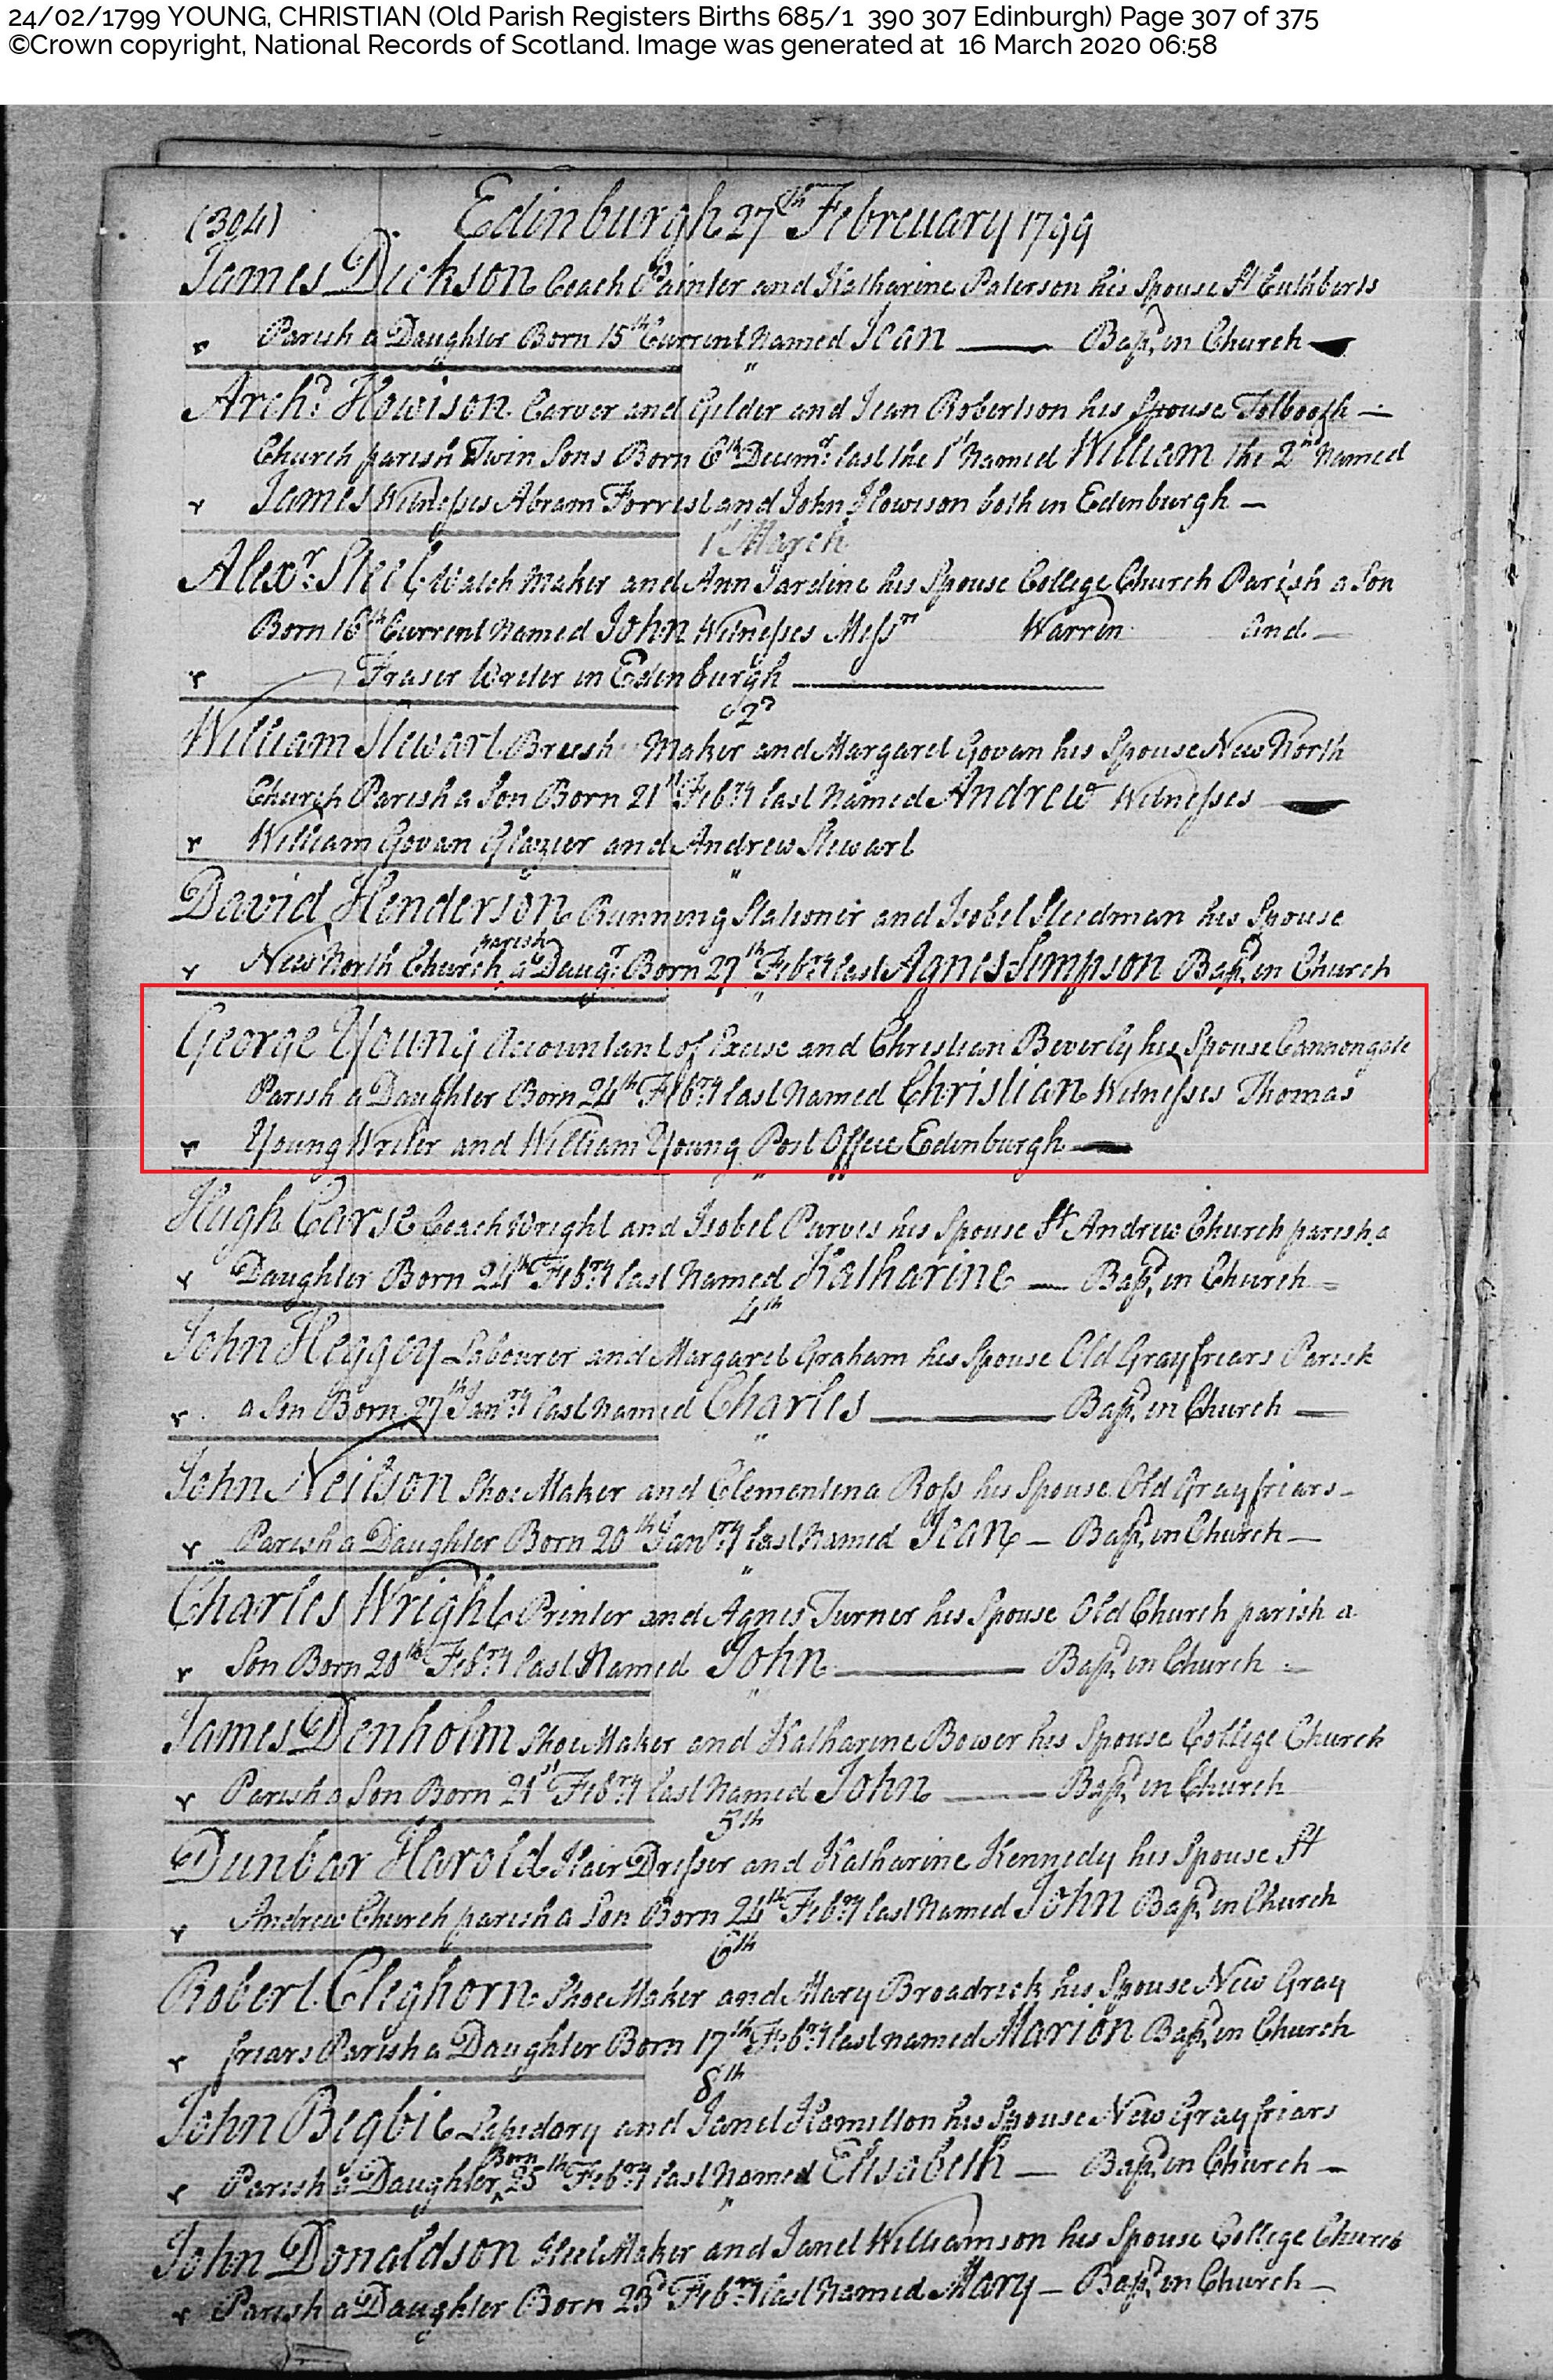 24/02/1799 YOUNG, CHRISTIAN (Old Parish Registers Births 685/1 390 307 Edinburgh) Page 307 of 375
©Crown copyright, National Records of Scotland. Image was generated at 16 March 2020 06:58
(304) Edinburgh 27th February 1799
James Dickson Coach Painter and Katharine Paterson his Spouse St Cuthberts
Parish a Daughter Born 15th Current Named Jean — Bapd. in Church
"
Archd. Howison Carver and Gilder and Jean Robertson his Spouse Tolbooth —
Church parish Twin Sons Born 6th Decemr. last the 1st Named William the 2nd Named
James Witnesses Abram Forrest and John Howison both in Edinburgh —
1st March
Alexr. Steel Watch Maker and Ann Jardine his Spouse College Church Parish a Son
Born 16th Current Named John Witnesses Messrs Warren and —
Fraser Writer in Edinburgh —
2d
William Stewart Brush Maker and Margaret Govan his Spouse New North
Church Parish a Son Born 21st Febry last Named Andrew Witnesses —
William Govan Glazier and Andrew Stewart
"
David Henderson Running Stationer and Isobel Steedman his Spouse
New North Church parish a Daugr. Born 27th Febry last Agnes Simpson Bapd. in Church
"
George Young Accountant of Excise and Christian Beverly his Spouse Cannongate
Parish a Daughter Born 24th Febry last Named Christian Witnesses Thomas
Young Writer and William Young Post Office Edinburgh —
"
Hugh Carse Coach Wright and Isobel Purves his Spouse St Andrew Church parish a
Daughter Born 24th Febry last Named Katharine — Bapd. in Church —
4th
John Heggey Labourer and Margaret Graham his Spouse Old Grayfriars Parish
a Son Born 27th Janry last Named Charles — Bapd. in Church —
"
John Neilson Shoe Maker and Clementina Ross his Spouse Old Grayfriars —
Parish a Daughter Born 20th Janry last Named Jean — Bapd. in Church —
"
Charles Wright Printer and Agnes Turner his Spouse Old Church parish a
Son Born 20th Febry last Named John — Bapd. in Church —
"
James Denholm Shoe Maker and Katharine Bower his Spouse College Church
Parish a Son Born 21st Febry last Named John — Bapd. in Church
5th
Dunbar Harold Hair Dresser and Katharine Kennedy his Spouse St
Andrew Church parish a Son Born 24th Febry last Named John Bapd. in Church
6th
Robert Cleghorn Shoe Maker and Mary Broadrick his Spouse New Gray
friars Parish a Daughter Born 17th Febry last named Marion Bapd. in Church
8th
John Begbie Lapidary and Janet Hamilton his Spouse New Grayfriars
Parish a Daughter Born 25th Febry last Named Elisabeth — Bapd. in Church —
"
John Donaldson Heel Maker and Janet Williamson his Spouse College Church
Parish a Daughter Born 23d Febry last Named Mary — Bapd. in Church —